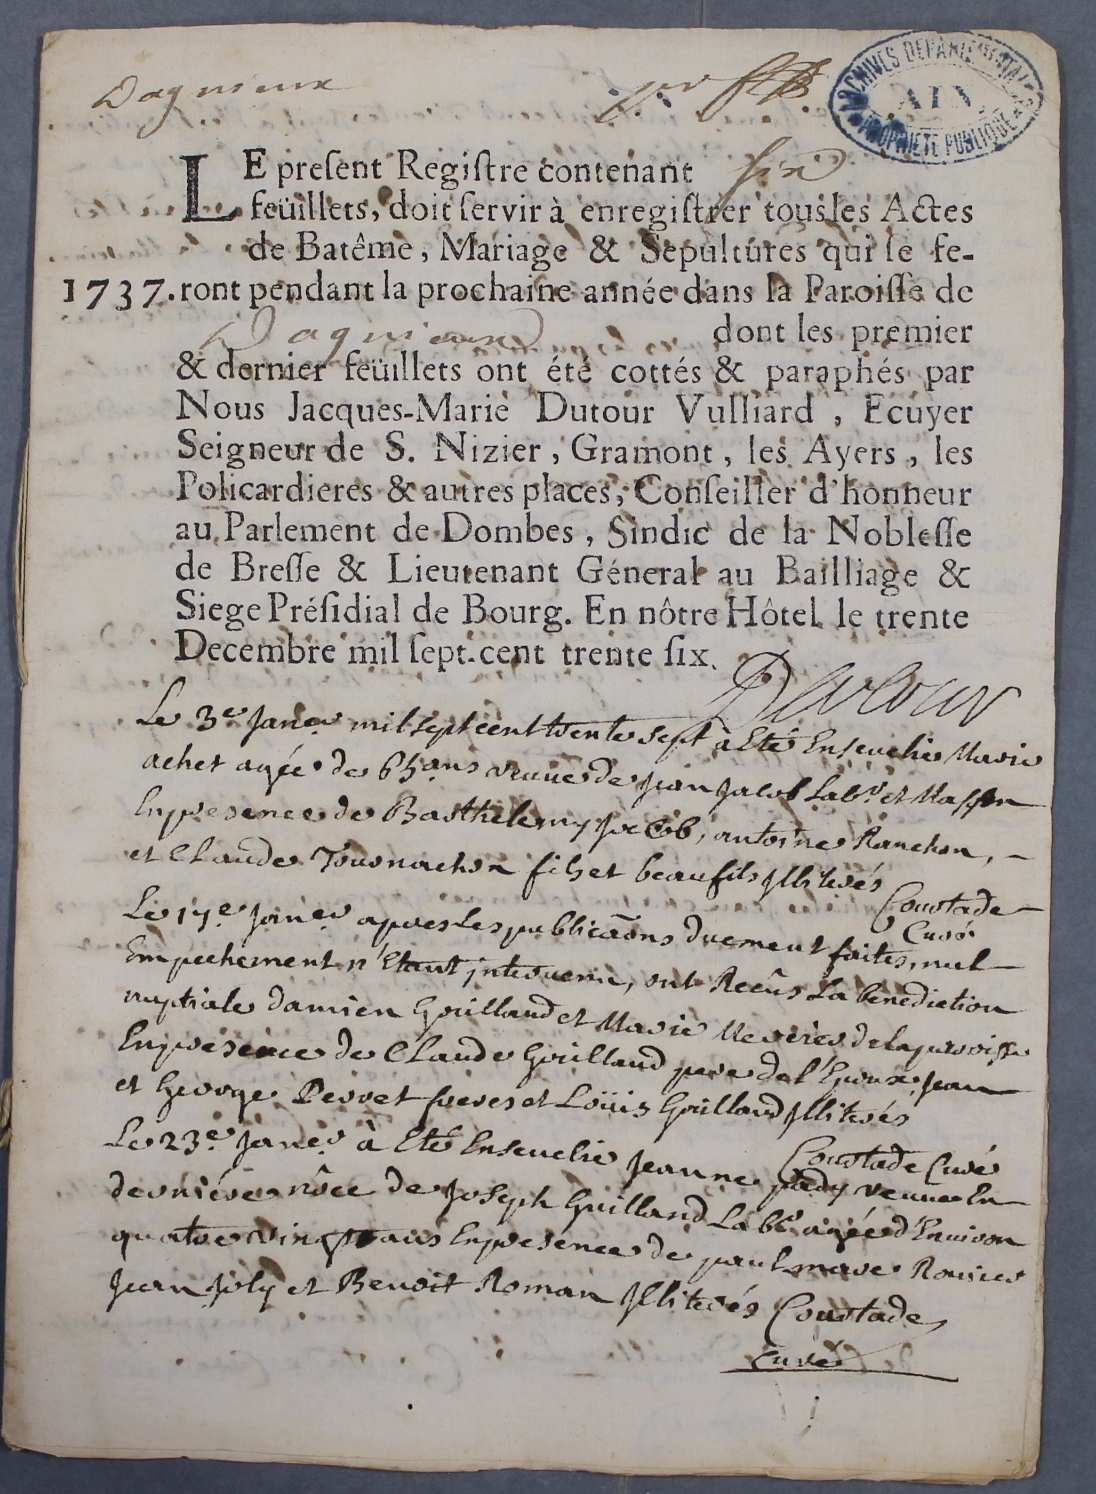 Dagnieux
ARCHIVES DEPARTEMENTALES
AIN
PROPRIETE PUBLIQUE
LE preſent Regiſtre contenant six
feüillets, doit ſervir à enregiſtrer tous les Actes
de Batême, Mariage & Sepultures qui ſe fe-
1737. ront pendant la prochaine année dans la Paroiſſe de
Dagnieux dont les premier
& dernier feüillets ont été cottés & paraphés par
Nous Jacques-Marie Dutour Vulliard, Ecuyer
Seigneur de S. Nizier, Gramont, les Ayers, les
Policardieres & autres places, Conſeiller d'honneur
au Parlement de Dombes, Sindic de la Nobleſſe
de Breſſe & Lieutenant Géneral au Bailliage &
Siege Préſidial de Bourg. En nôtre Hôtel le trente
Decembre mil ſept-cent trente ſix.
Dutour
Le 3e Janer mil sept cent trente sept à Eté Enseuelie Marie
achet agée de 65 ans veuue de Jean Jacob Labr et Masson
En presence de Barthelemy Jacob, antoine Ranchon,
et Claude Tournachon fils et beaufils Illiterés
Coustade
Curé
Le 17e Janer apres les publicãons duement faites, nul
Empechement n'Etant interuenu, ont Reçûs La benediction
nuptiale damien Guilland et Marie Meriere de la paroisse
En presence de Claude Guilland pere de l'Epoux, Jean
et George Perret freres et Loüis Guilland Illiterés
Coustade Curé
Le 23e Janer à Eté Enseuelie Jeanne pady veuue En
derniére nôce de Joseph Guilland Labr agée d'Enuiron
quatre vingt ans En presence de paul mare Rouier
Jean Joly et Benoit Roman Illiterés Coustade
Curé